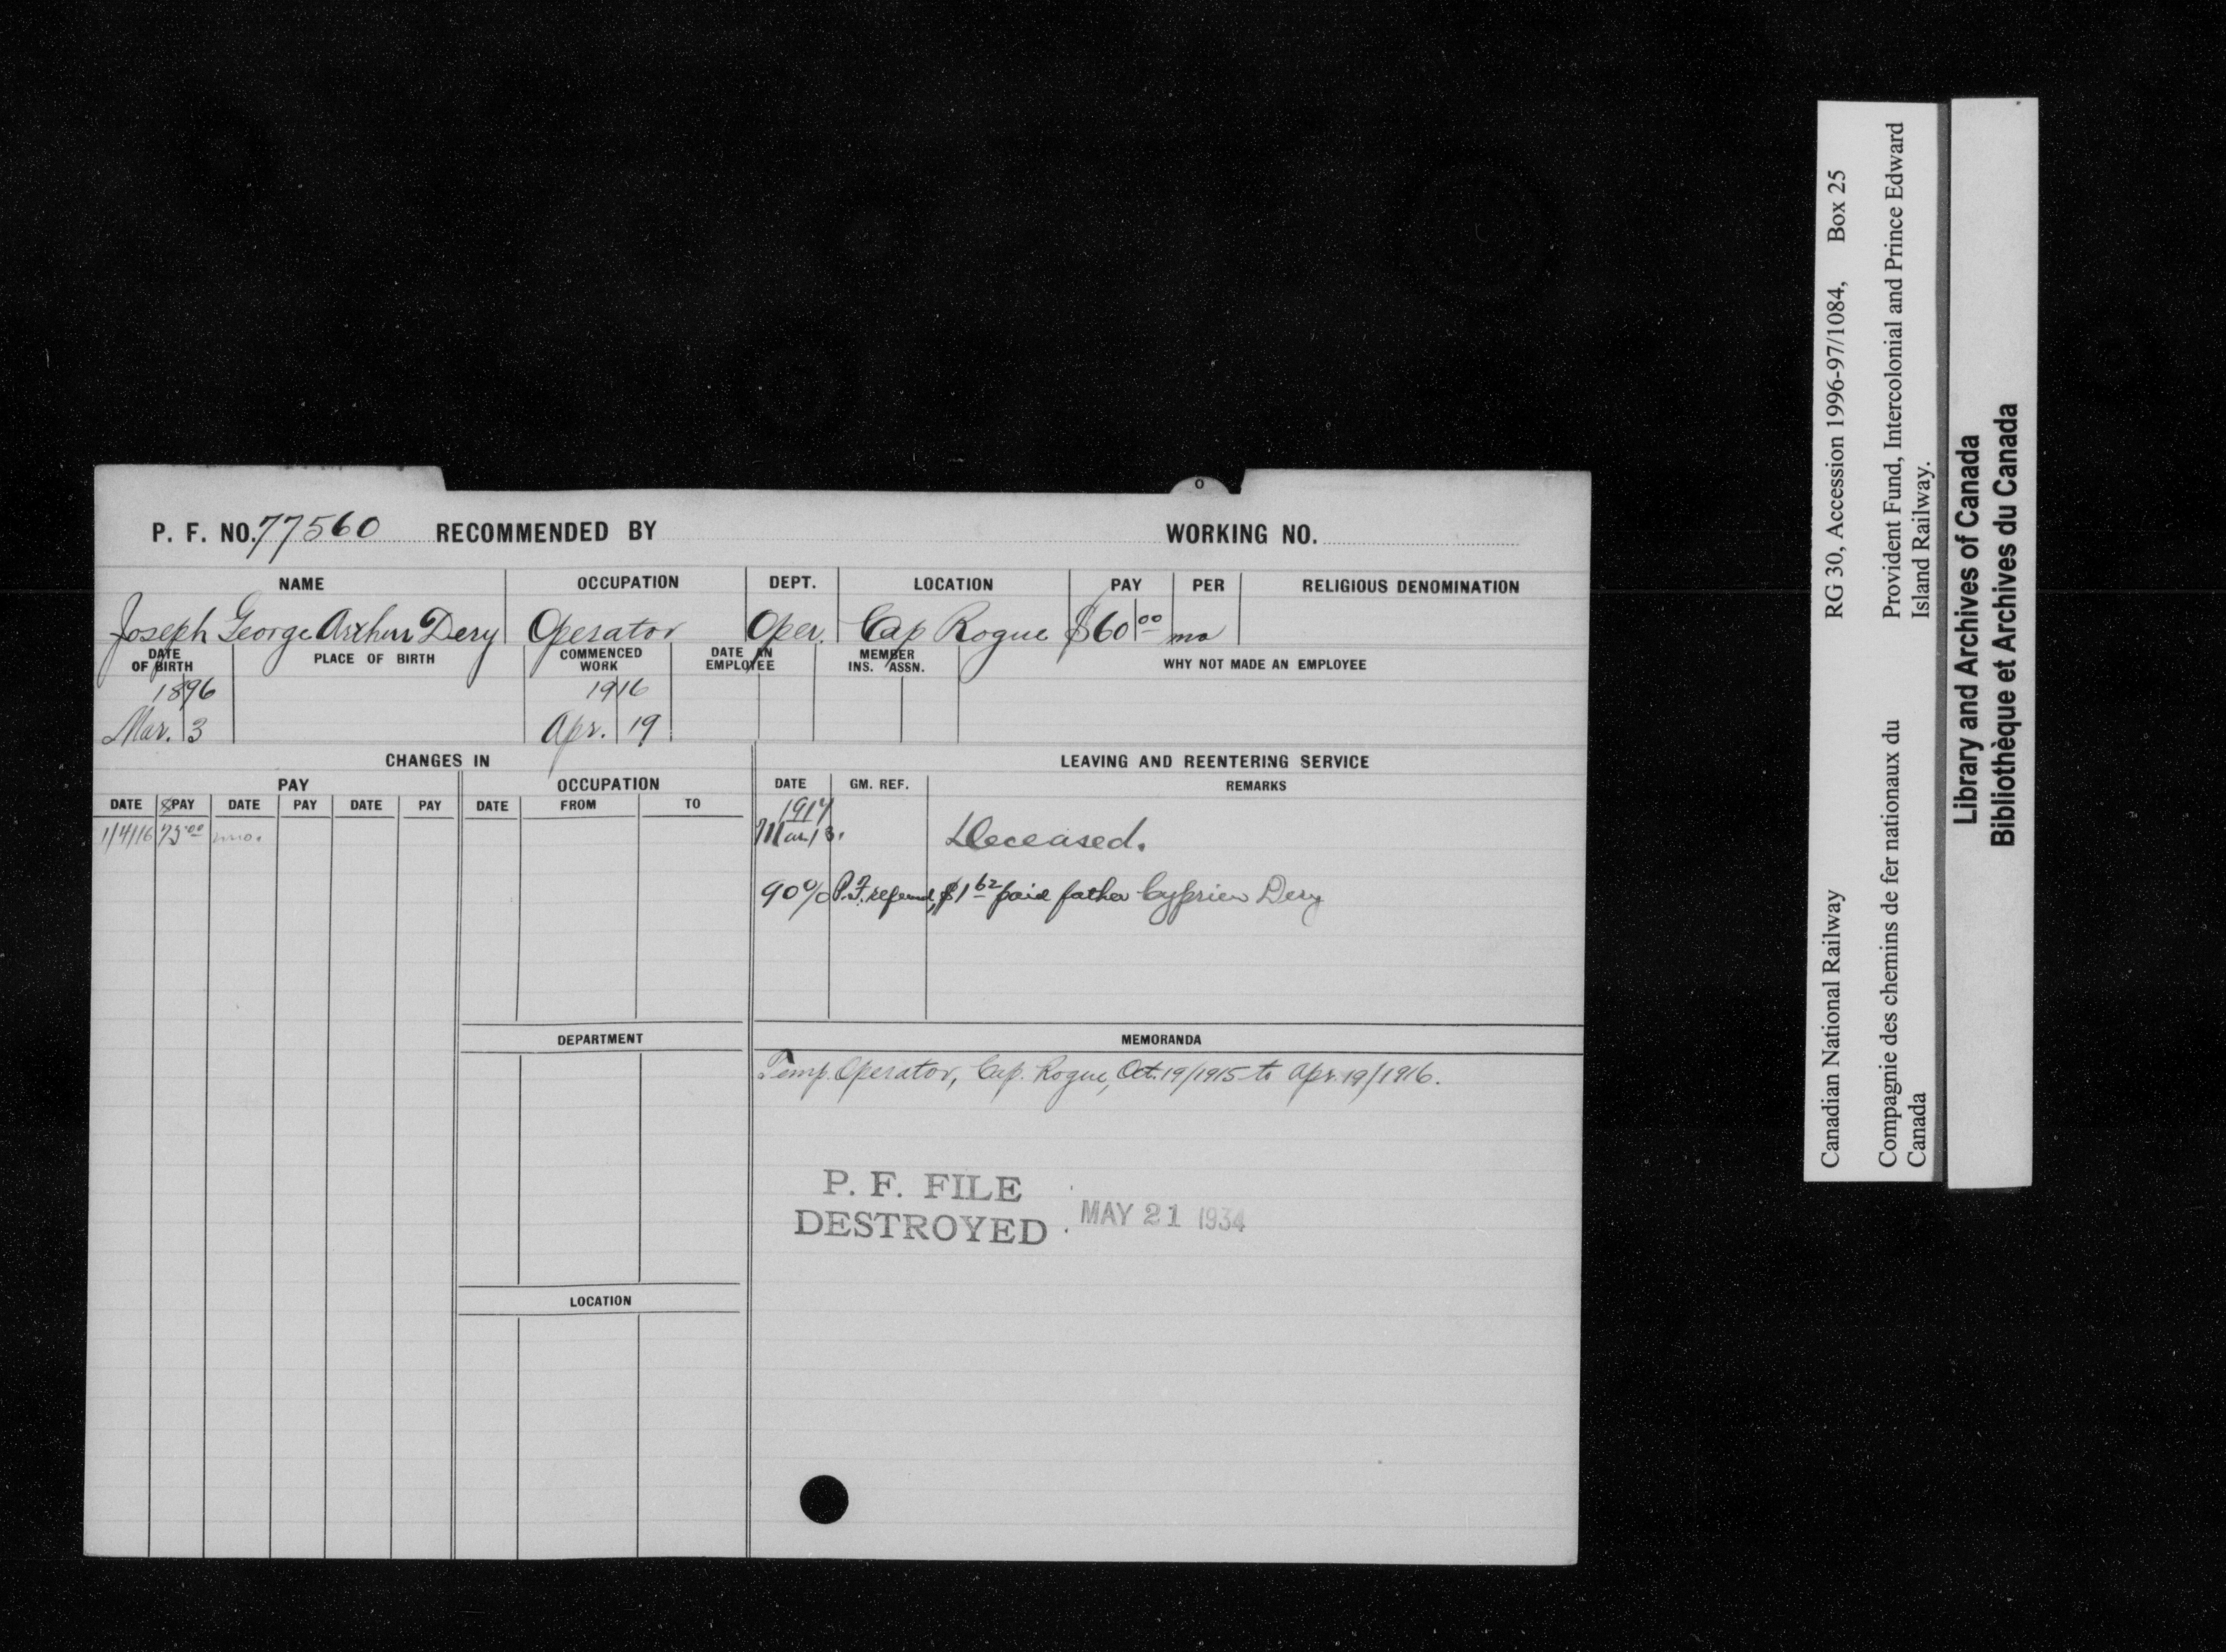 P. F. NO. 77560 RECOMMENDED BY WORKING NO.
NAME OCCUPATION DEPT. LOCATION PAY PER RELIGIOUS DENOMINATION
Joseph George Arthur Dery Operator Oper. Cap Rogue $60 00 mo
DATE OF BIRTH PLACE OF BIRTH COMMENCED WORK DATE AN EMPLOYEE MEMBER INS. ASSN. WHY NOT MADE AN EMPLOYEE
1896 1916
Mar. 3 Apr. 19
CHANGES IN LEAVING AND REENTERING SERVICE
PAY OCCUPATION DATE GM. REF. REMARKS
DATE PAY DATE PAY DATE PAY DATE FROM TO
1917
1/4/16 75 00 mo. Mar. 13. Deceased.
90% P.F. refund, $1 62 paid father Cyprien Dery
DEPARTMENT MEMORANDA
Temp. Operator, Cap. Rogue, Oct. 19/1915 to Apr. 19/1916.
P. F. FILE
DESTROYED. MAY 21 1934
LOCATION
Canadian National Railway RG 30, Accession 1996-97/1084, Box 25
Compagnie des chemins de fer nationaux du Provident Fund, Intercolonial and Prince Edward
Canada Island Railway.
Library and Archives of Canada
Bibliothèque et Archives du Canada